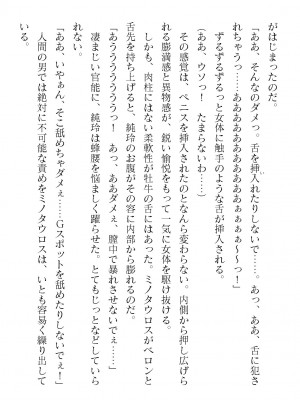 がはじまったのだ。
「ああ、そんなのダメっ。舌を挿入れたりしないで……。あっ、ああ、舌に犯さ
れちゃうっ……ああああああああああああぁぁぁぁ〜〜っ！」
ずるずるずるっと女体に触手のような舌が挿入される。
（あっ、ウソっ！　たまらないわ……）
その感覚は、ペニスを挿入されたのとなんら変わらない。内側から押し広げら
れる膨満感と異物感が、鋭い愉悦をもって一気に女体を駆け抜ける。
しかも、肉柱にはない柔軟性が牡牛の舌にはあった。ミノタウロスがベロンと
舌先を持ち上げると、純玲のお腹がその容に内部から膨れるのだ。
「あうううううううっ！　あっ、ああダメぇ、膣中で暴れさせないでぇ……」
凄まじい官能に、純玲は蜂腰を悩ましく躍らせた。とてもじっとなどしていら
れない。
「ああ、いやぁん、そこ舐めちゃダメぇ……Ｇスポットを舐めたりしないでぇ！」
人間の男では絶対に不可能な責めをミノタウロスは、いとも容易く繰り出して
いる。